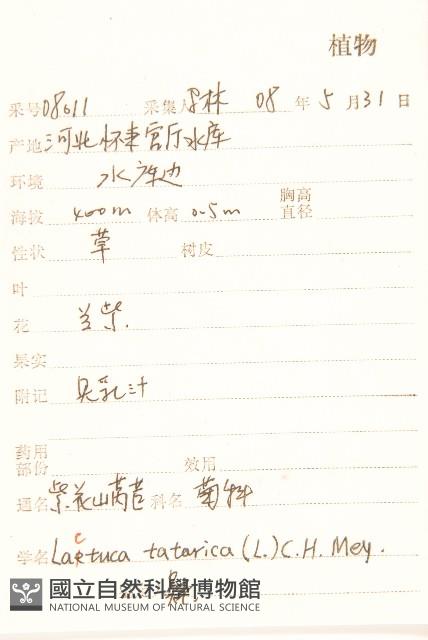 植物
采号 08011 采集人 林 08 年 5 月 31 日
产地 河北怀来官厅水库
环境 水库边
海拔 400m 体高 0.5m 胸高直径
性状 草 树皮
叶
花 兰紫.
果实
附记 具乳汁
药用部份 效用
通名 紫花山莴苣 科名 菊科
学名 Lactuca tatarica (L.) C.H. Mey.
國立自然科學博物館
NATIONAL MUSEUM OF NATURAL SCIENCE